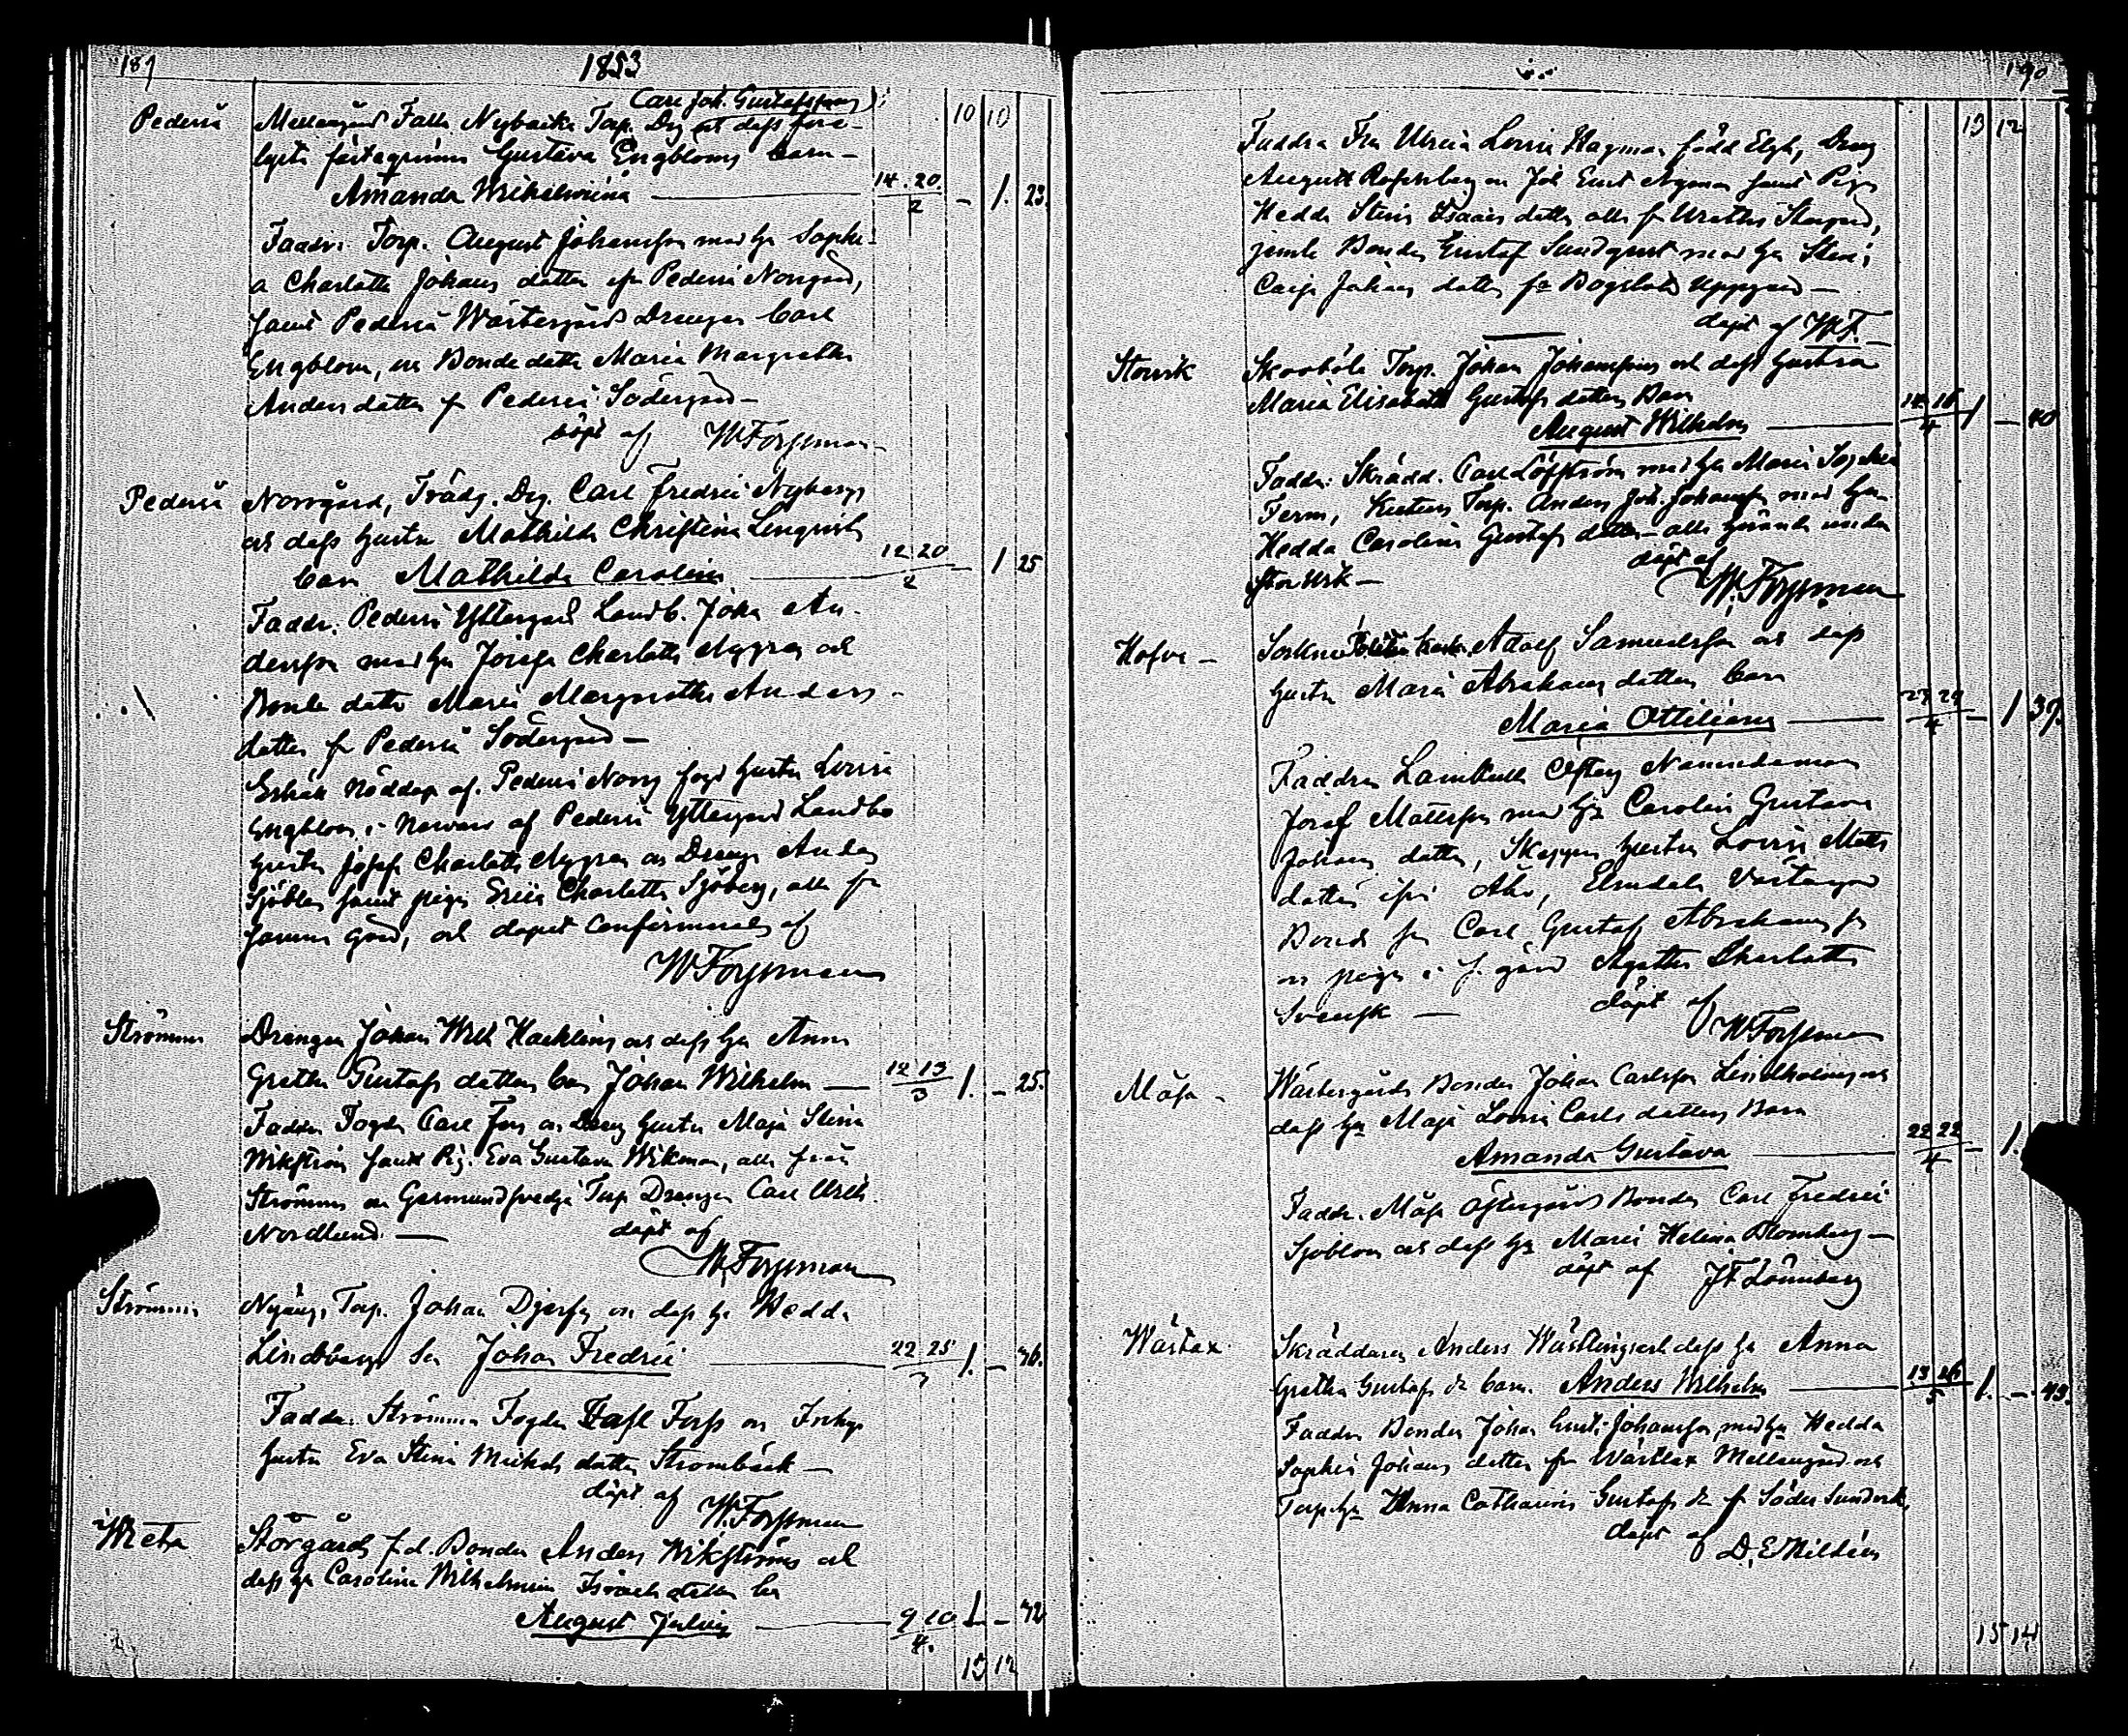 189 1853
Carl Joh. Gustafsson
Pederså Mellangård Falls Nybacka Torp. Drg och dess före- 10 10
lyste fästeqvinna Gustava Engbloms barn –
Amanda Wilhelmina 14. 20. / 2 – 1. 23.
Faddr. Torp. August Johansson med h. Sophi-
a Charlotta Johans dotter från Pederså Norrgård,
samt Pederså Wästergårds Drengen Carl
Engblom, och Bonde dottr Maria Margretha
Anders dotter fr Pederså Södergård –
döpt af W Forssman
Pederså Norrgård, Trädg. Drg. Carl Fredric Nybergs
och dess hustru Mathilda Christina Lenqvists
barn Mathilda Carolina 12 20 / 2 – 1 25
Faddr. Pederså Yttergård Landb. Joha An-
dersson med h. Josefa Charlotta Nygren och
Bonde dottr Maria Margretha Anders-
dotter fr Pederså Södergård –
Erhöll Nöddop af Pederså Norrg fogd hustru Lovisa
Engblom, i närvaro af Pederså Yttergård Landbo
hustru Josefa Charlotta Nygren och Dreng Anders
Sjöblom samt pigan Erica Charlotta Sjöberg, alla fr
samma gård, och döpet confirmerades af
W Forssman
Strömma Drengen Johan Wilh Hacklins och dess h. Anna
Gretha Gustafs dotters barn Johan Wilhelm — 12 13 / 3 1. – 25.
Faddr. Fogden Carl Fors och Dreng hustru Maja Stina
Wikström samt Pig. Eva Gustava Wikman, alla från
Strömma och Germundsvedja Torp Drengen Carl Wilh.
Nordlund. — döpt af
W. Forssman
Strömma Nyäng, Torp. Johan Djerfs och dess h. Hedda
Lindbergs son Johan Fredric 22 25 / 3 1. – 36.
Faddr. Strömma Fogden Carl Forss och Inhys
hustru Eva Stina Michels dotter Strömbäck —
döpt af W. Forssman
Wreta Storgårds f.d. Bonden Anders Wikströms och
dess h. Carolina Wilhelmina Israels dotter barn
August Julius 9 10 / 4. 1 – 32
13 12
190
13 12
Faddra Fru Ulrica Lovisa Hagman född Elgh, Dreng
August Rosenberg och Joh Ernst Nyman samt Pigan
Hedda Stina Isaacs dotter alla fr Wretha Storgård,
jemte Bonden Gustaf Sundqvist med h. Stina
Caisa Johans dotter fr Bogsböle Uppgård —
döpt af W.F.
Storvik Skovböle Torp. Johan Johanssons och dess hustru
Maria Elisabeth Gustafs dotters Barn
August Wilhelm 14 16 / 4 1 – 40
Faddr. Skrädd. Carl Löfström med h. Maria Sophia
Ferm, Torp. Anders Joh. Johansson med h.
Hedda Carolina Gustafs dotter – alla hörande under
Storvik — döpt af
W. Forssman
Hofva – Adolf Samuelsson och dess
hustru Maria Abrahams dotters barn
Maria Ottiliana 23 24 / 4 – 1 39.
Faddra Nämndeman
Josef Mattsson med h. Carolina Gustava
Johans dotter, Skeppar hustru Lovisa Matts
dotter Elmdals Västergård
Bonde son Carl Gustaf Abrahamsson
och pigan i s. gård Agatha Charlotta
Svensk — döpt af
W Forssman
Måsa – Wästergårds Bonden Johan Carlsson Lindholms och
dess h. Maja Lovisa Carls dotters Barn
Amanda Gustava 22 22 / 4 – 1.
Faddr. Måsa Östergårds Bonden Carl Fredric
Sjöblom och dess h. Maria Helena Blomberg —
döpt af J F Lönnberg
Wårtax Skräddaren Anders Wårtlings och dess h. Anna
Gretha Gustafs dr barn. Anders Wilhelm 13 26 / 5 1. – 43.
Faddra Bonden Johan Gust: Johansson med h. Hedda
Sophia Johans dotter fr Wårtax Mellangård och
Torp. h. Anna Catharina Gustafs dr fr Söder Sundvik
döpt af D. E. Miltén
15 14